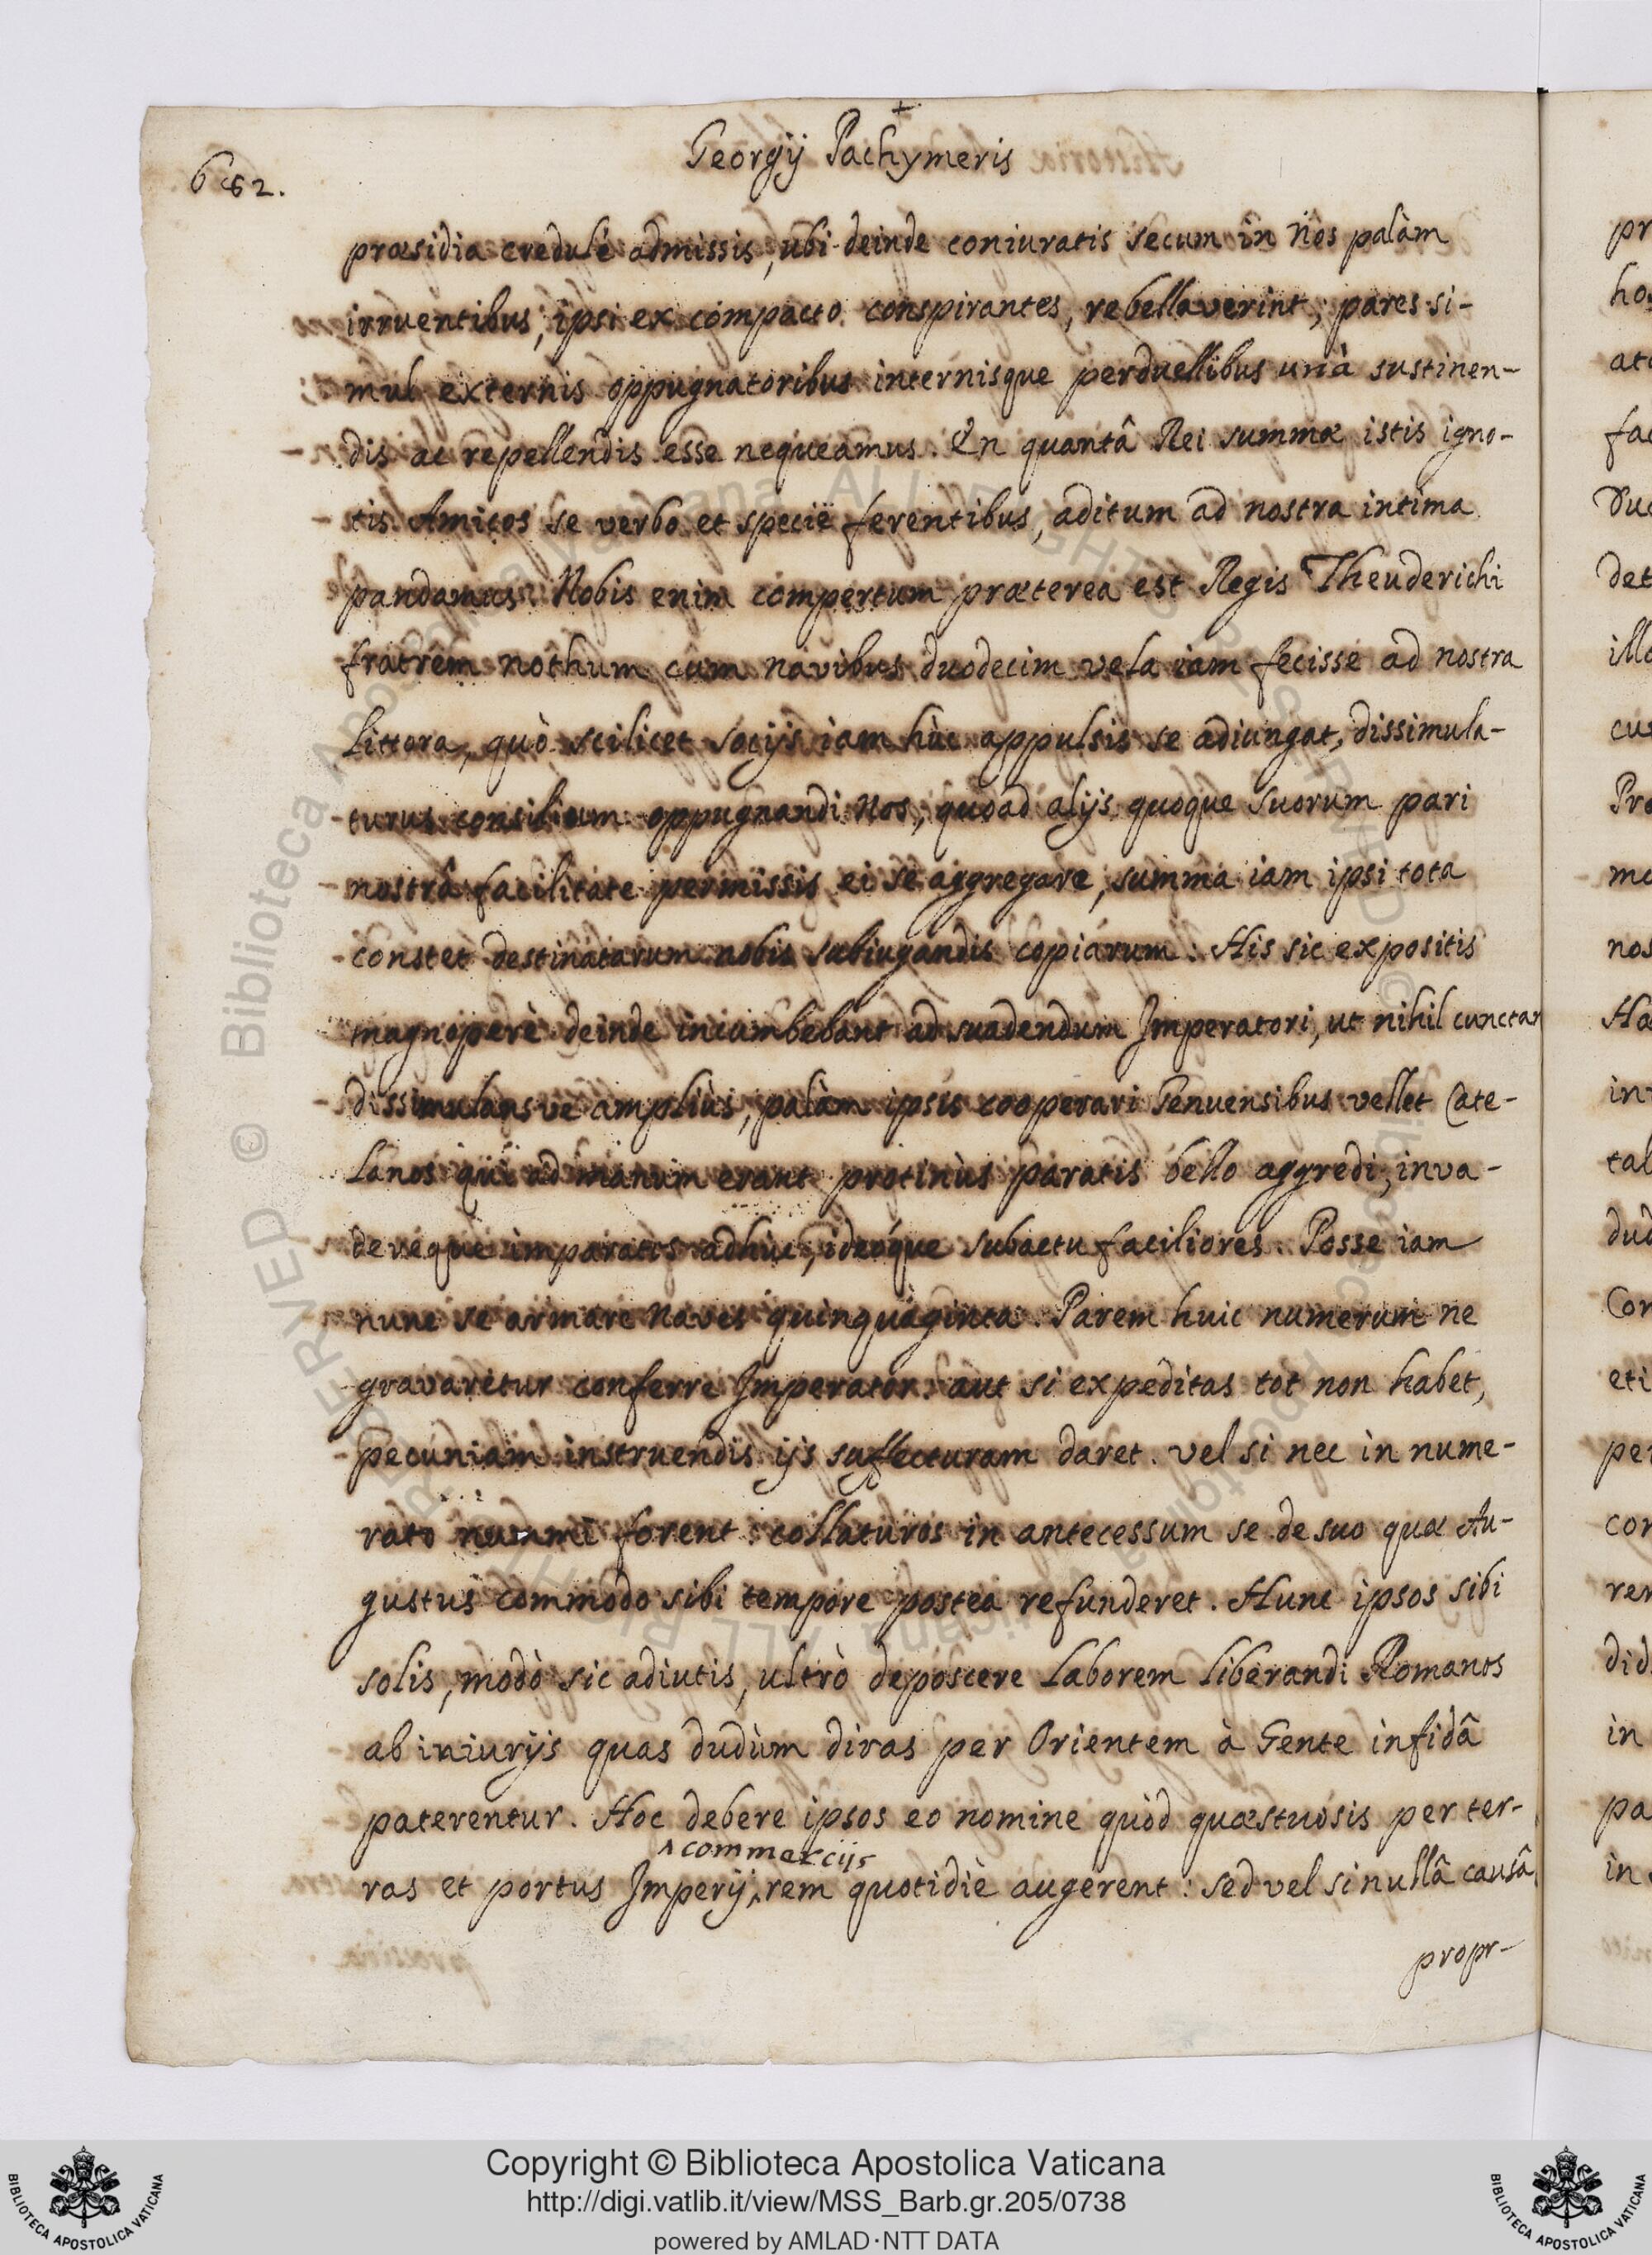 Georgij Pachymeris
662.
præsidia credulè admissis, ubi deinde coniuratis secum in nos palàm
irruentibus, ipsi ex compacto conspirantes, rebellaverint; pares si-
mul externis oppugnatoribus internisque perduellibus unà sustinen-
dis ac repellendis esse nequeamus. En quantâ Rei summæ istis igno-
tis Amicos se verbo et specie ferentibus, aditum ad nostra intima
pandamus. Nobis enim compertum præterea est Regis Theuderichi
fratrem nothum cum navibus duodecim vela iam fecisse ad nostra
littora, quò scilicet socijs iam hùc appulsis se adiungat, dissimula-
turus consilium oppugnandi nos, quoad alijs quoque suorum pari
nostrâ facilitate permissis ei se aggregare, summa iam ipsi tota
constet destinatarum nobis subiugandis copiarum. His sic expositis
magnoperè deinde incumbebant ad suadendum Imperatori, ut nihil cunctan
dissimulansve ampliùs, palàm ipsis cooperari Genuensibus vellet Cate-
lanos qui ad manum erant protinùs paratis bello aggredi, inva-
dereque imparatos adhùc, ideóque subactu faciliores. Posse iam
nunc se armare naves quinquaginta. Parem huic numerum ne
gravaretur conferre Imperator. aut si expeditas tot non habet,
pecuniam instruendis ijs suffecturam daret. vel si nec in nume-
rato nummi forent: collaturos in antecessum se de suo quæ Au-
gustus commodo sibi tempore postea refunderet. Hunc ipsos sibi
solis, modò sic adiutis, ultrò deposcere laborem liberandi Romanos
ab iniurijs quas dudùm diras per Orientem à Gente infidâ
paterentur. Hoc debere ipsos eo nomine quòd quæstuosis per ter-
^ commercijs
ras et portus Imperij ^ rem quotidiè augerent: sed vel si nullâ causâ
propr-
pr
ho
at
fa
Du
det
ill
cu
Pr
mo
nos
Ha
in
tal
dud
Con
eti
per
con
rer
did
in
pa
in
© Biblioteca Apostolica Vaticana ALL RIGHTS RESERVED
Copyright © Biblioteca Apostolica Vaticana
http://digi.vatlib.it/view/MSS_Barb.gr.205/0738
powered by AMLAD·NTT DATA
BIBLIOTECA APOSTOLICA VATICANA
BIBLIOTECA APOSTOLICA VATICANA